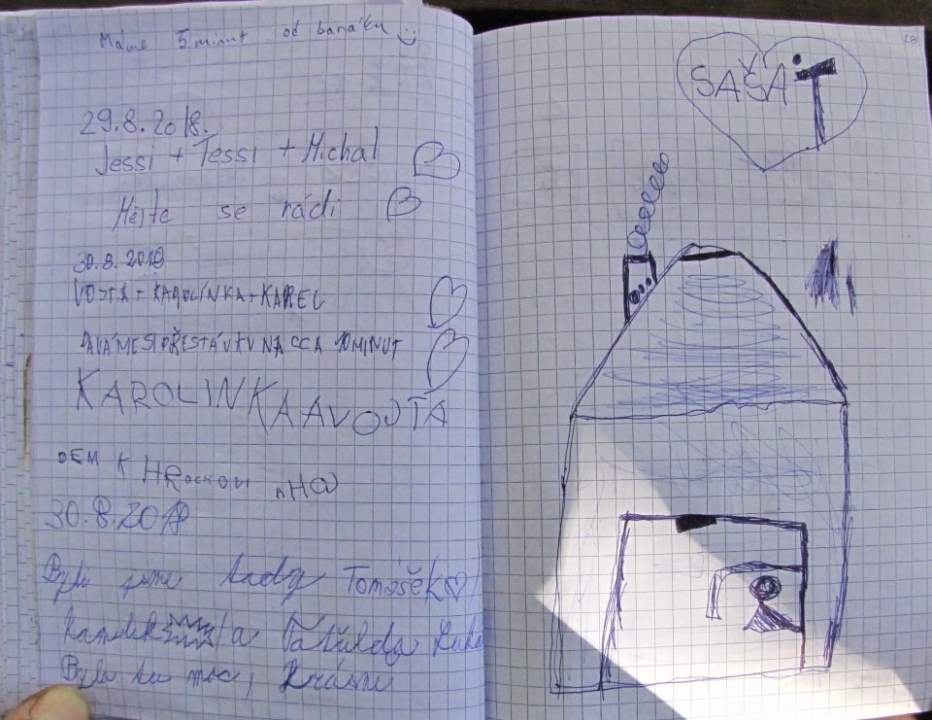 Máme 5 minut od baráku
29.8.2018.
Jessi + Tessi + Michal
Mějte se rádi
30.8.2018
VOJTA + KAROLÍNKA + KAREL
DÁVÁME SI PŘESTÁVKU NA CCA 10 MINUT
KAROLINKA A VOJTA
DEM K HROCHOVI
30.8.2018
Byli jsme tady Tomášek
a
Bylo to moc, krásné
SAŠA T